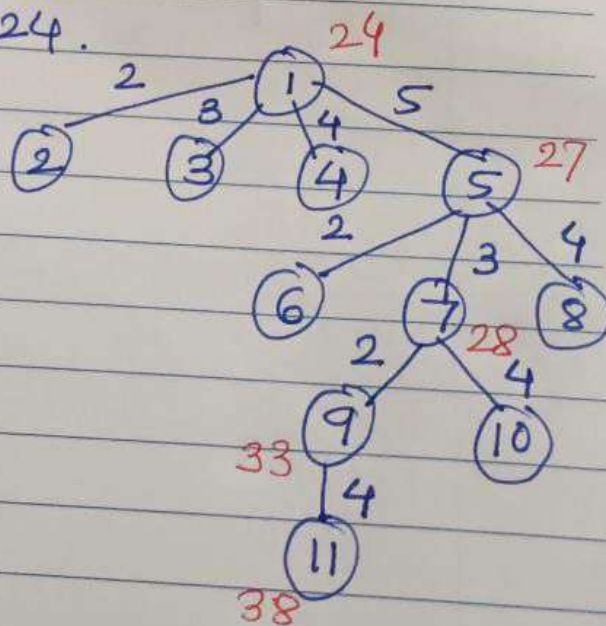 24.
24
1
2 3 4 5
2 3 4 5 27
2 3 4
6 7 8
28
2 4
9 10
33
4
11
38